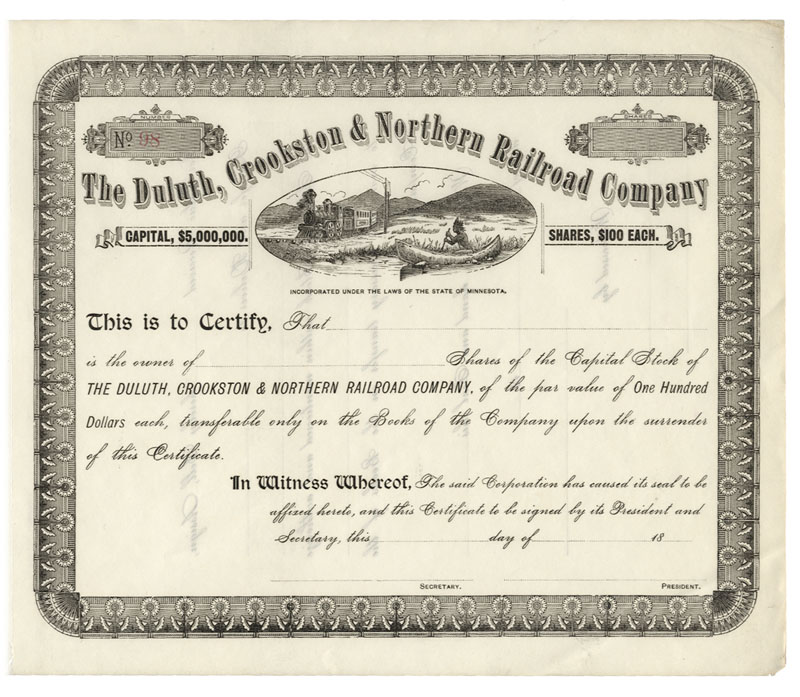 NUMBER
No 98
SHARES
The Duluth, Crookston & Northern Railroad Company
CAPITAL, $5,000,000.
SHARES, $100 EACH.
INCORPORATED UNDER THE LAWS OF THE STATE OF MINNESOTA.
This is to Certify, That
is the owner of Shares of the Capital Stock of
THE DULUTH, CROOKSTON & NORTHERN RAILROAD COMPANY, of the par value of One Hundred
Dollars each, transferable only on the Books of the Company upon the surrender
of this Certificate.
In Witness Whereof, The said Corporation has caused its seal to be
affixed hereto, and this Certificate to be signed by its President and
Secretary, this day of 18
SECRETARY. PRESIDENT.